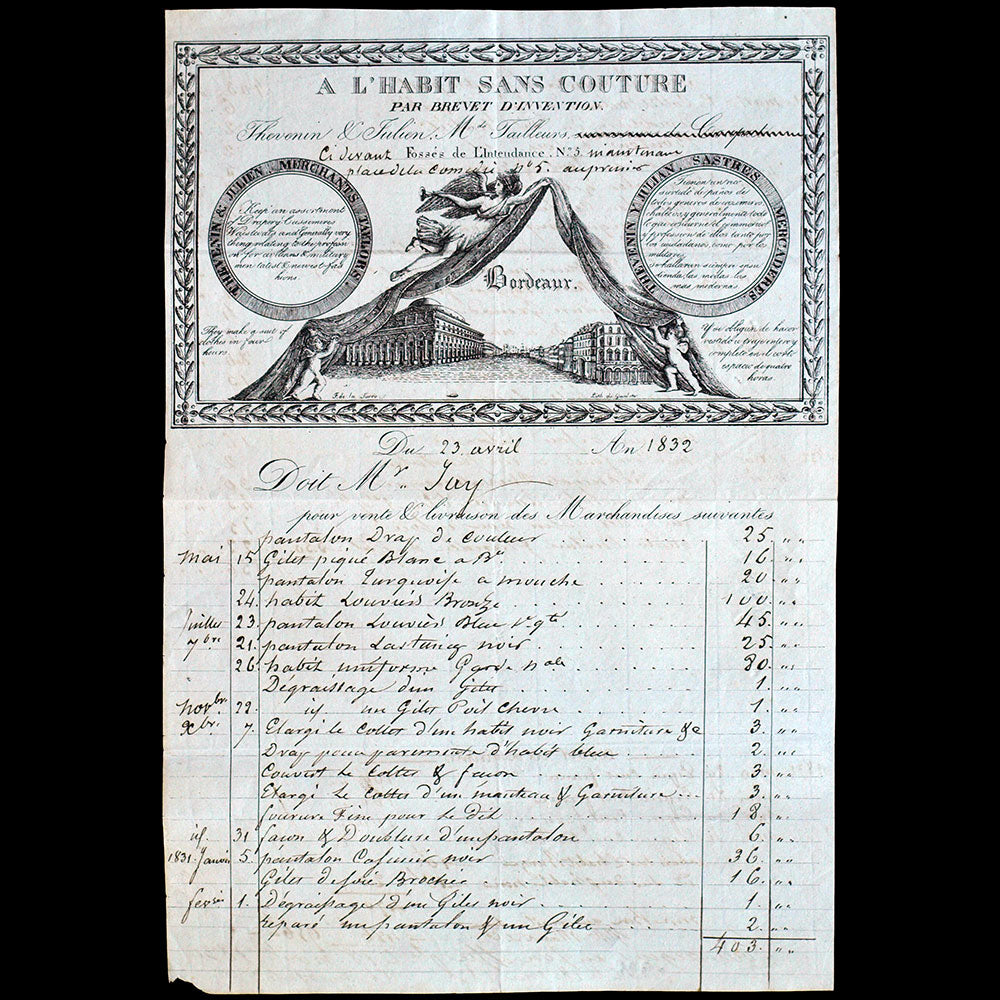 A L'HABIT SANS COUTURE
PAR BREVET D'INVENTION.
Thevenin & Julien, Mds Tailleurs,
Ci devant Fossés de L'Intendance, No. 5. maintenant
place de la Comédie No 5. au premier
THEVENIN & JULIEN, MERCHANTS TAYLORS,
Keep an assortment
of Drapery Cassemires
Waistcoats and Generally very
theng relating to the profession
for civilians & military
men latest & newest fashions
They make a suit of
clothes in four
hours.
THEVENIN Y JULIAN, SASTRES MERCADERES
Tienen un rico
surtido de paños de
todos generos de casemires
chalecos, y generalmente todo
lo que concierne el
profesion de ellos tanto por
los ciudadanos, como por los
militares.
se hallaran siempre en su
tienda, las modas las
mas modernas
Y se obligan de hacer
vestido o traje entero y
completo en el corto
espacio de quatro
horas.
Bordeaux.
Du 23 avril An 1832
Doit Mr. Jay
pour vente & livraison des Marchandises suivantes
pantalon Drap de Couleur 25. ""
Mai 15 Gilet piqué Blanc a Br. 16 ""
pantalon Turquoise a mouche 20 ""
24. habit Louviers Bronze 100 ""
Juillet 23. pantalon Louviers Bleu 1e qté 45. ""
7bre 21. pantalon Lasting noir 25 ""
26. habit uniforme Garde nale 80 ""
Dégraissage d'un Gilet 1. ""
Novbr. 22. id. un Gilet Poil Chevre 1. ""
Xbr. 7. Elargi le Collet d'un habit noir Garniture &c 3. ""
Drap pour parements d'habit bleu 2. ""
Couvert le Collet & facon 3. ""
Elargi Le Collet d'un manteau & Garniture 3. ""
fourure Fine pour le dit 18. ""
id. 31 facon & Doublure d'un pantalon 6. ""
1831. Janvier 5. pantalon Casimir noir 36. ""
Gilet de soie Brochée 16. ""
fevrier 1. Dégraissage d'un Gilet noir 1. ""
réparé un pantalon & un Gilet 2. ""
403. ""